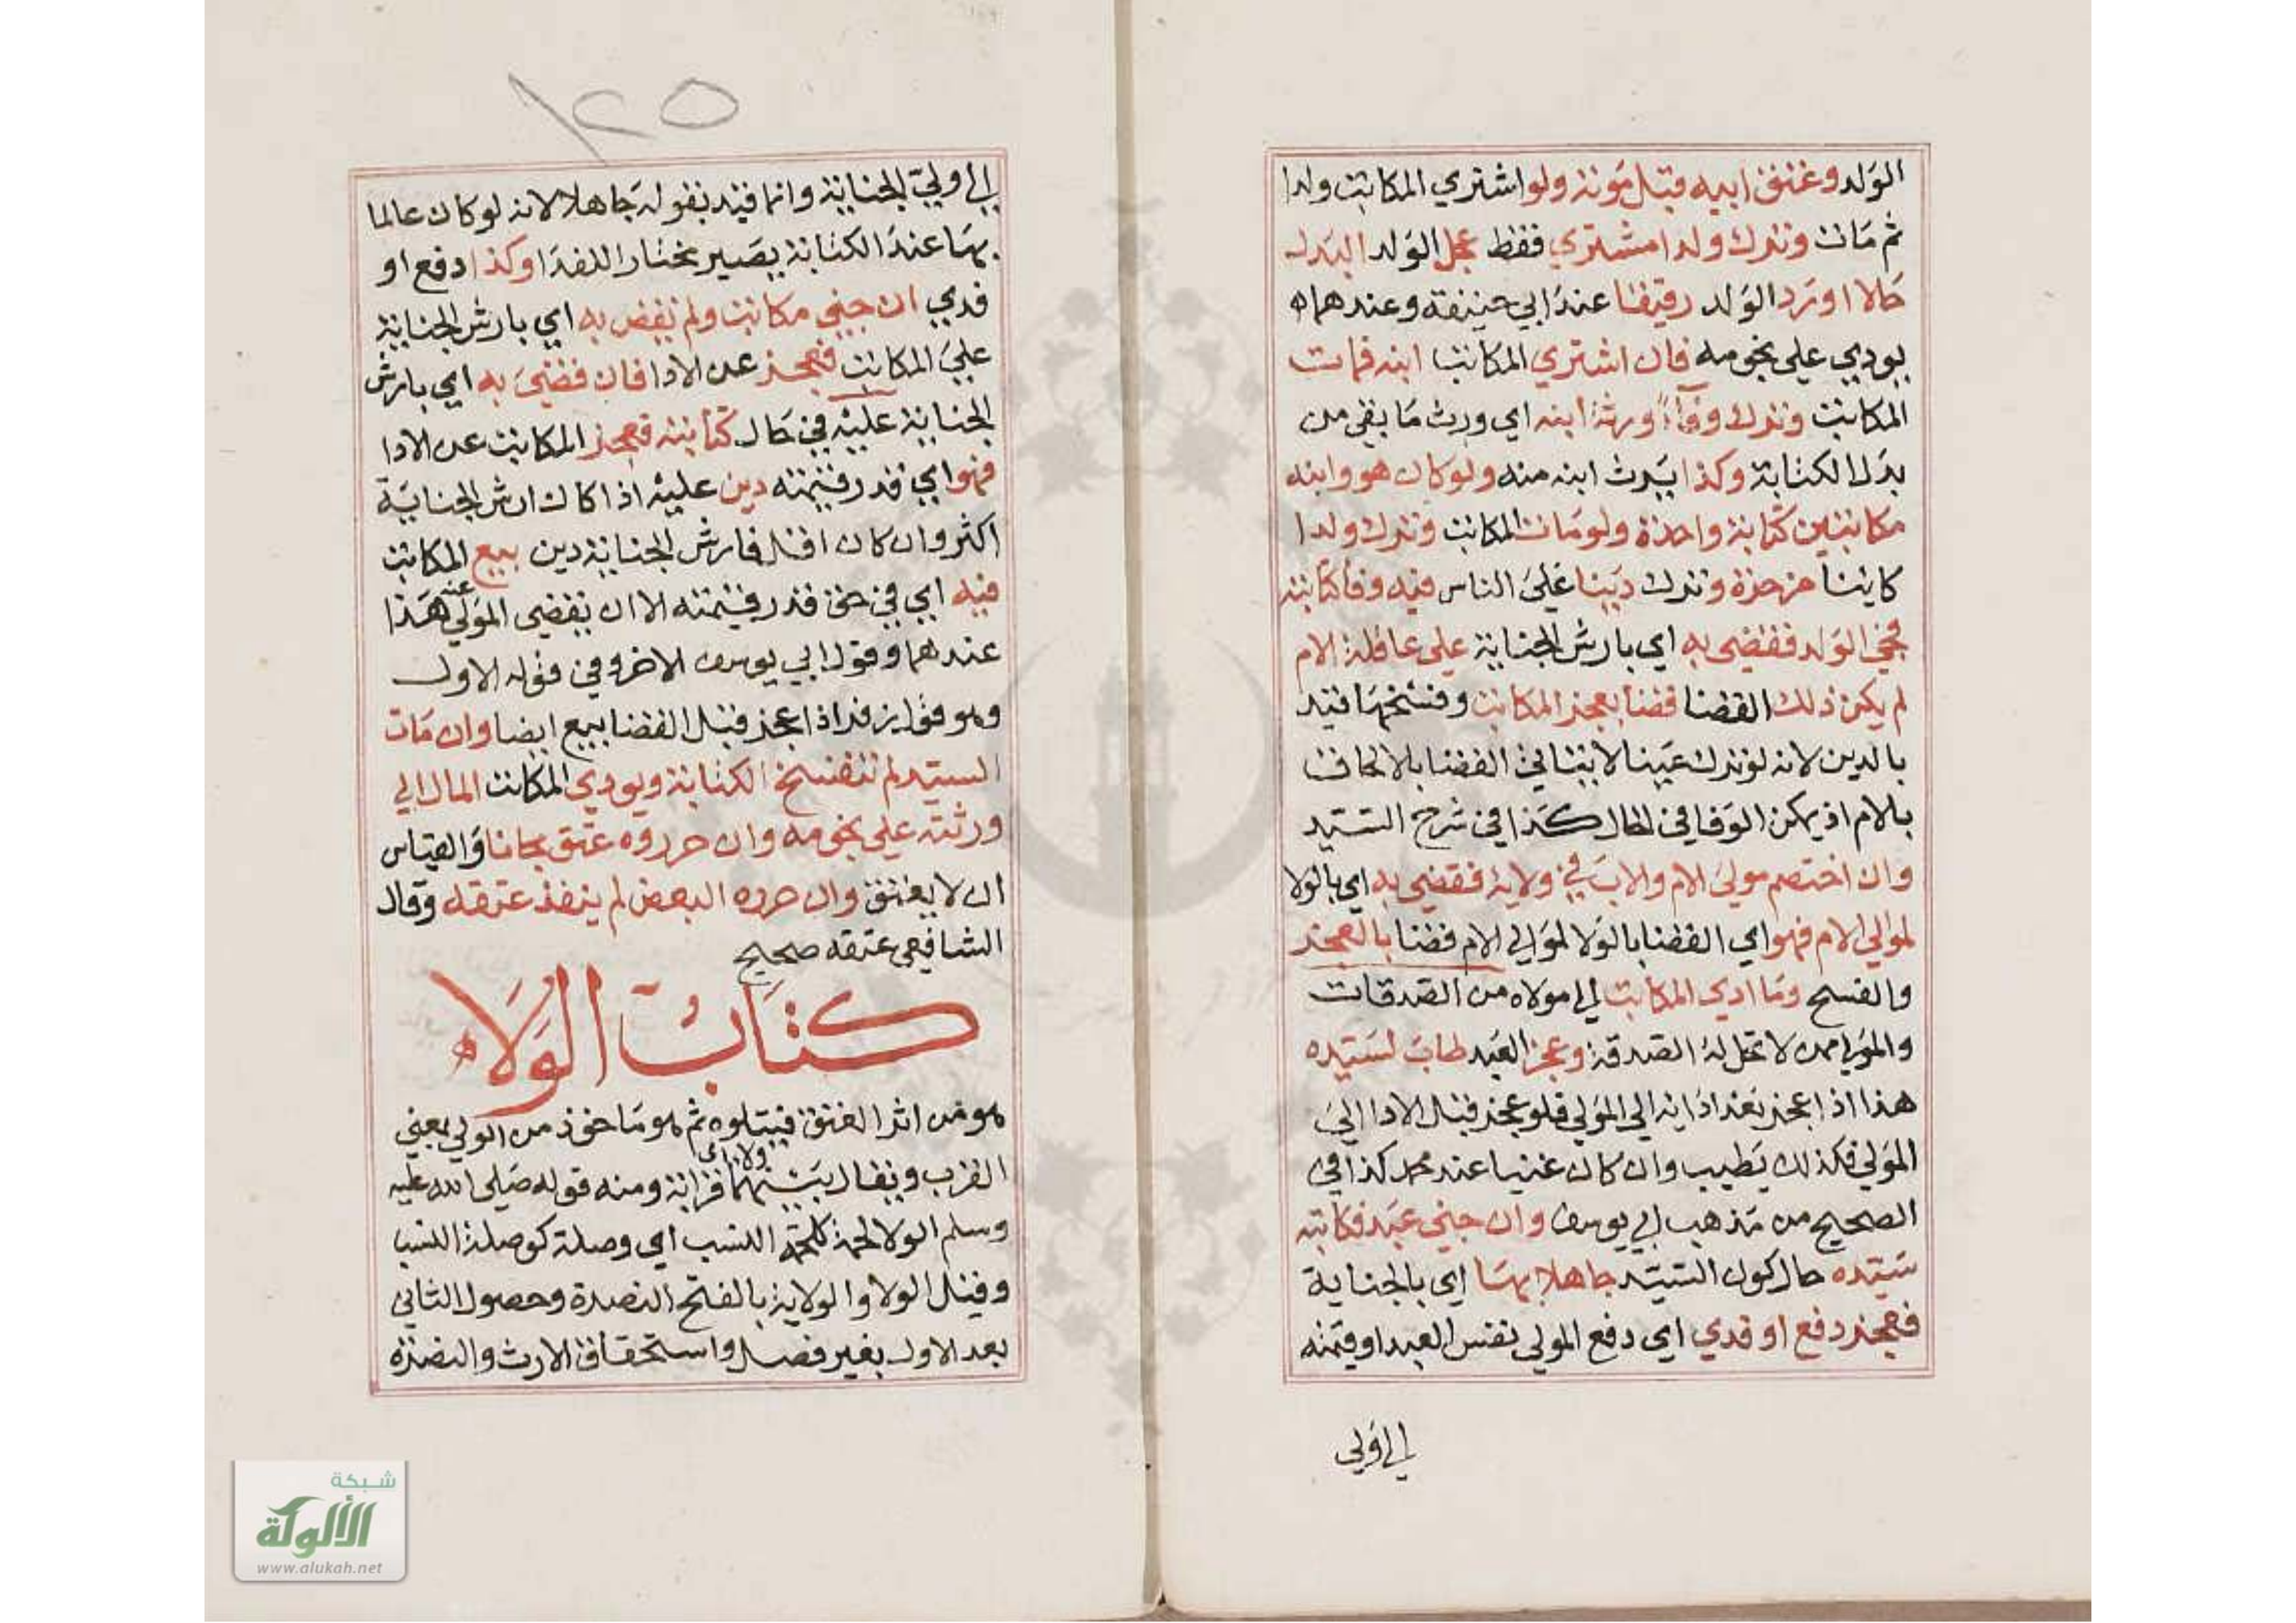 الولد وعتق ابيه قبل موته ولو اشتري المكاتب ولدا
ثم مات وترك ولدا مشتري فقط عجل الولد البدل
حالا او رد الولد رقيقا عند ابي حنيفة وعندهما
يودي علي نجومه فان اشتري المكاتب ابنه فمات
المكاتب وترك وفاء ورثه ابنه اي ورث ما بقي من
بدل الكتابة وكذا يرث ابنه منه ولو كان هو وابنه
مكاتبين كتابة واحدة ولو مات المكاتب وترك ولدا
كاينا من حرة وترك دينا علي الناس فيه وفا كتابته
فجني الولد فقضي به اي بارش الجناية علي عاقلة الام
لم يكن ذلك القضا قضا بعجز المكاتب وفسخها قيد
بالدين لانه لو ترك عينا لا يتاتي القضا بالالحاق
بالام اذ يمكن الوفا في الحال كذا في شرح السيد
وان اختصم مولي الام والاب في ولايه فقضي به اي بالولا
لموالي الام فهو اي القضا بالولا لموالي الام قضا بالعجز
والفسخ وما ادي المكاتب الي مولاه من الصدقات
والمولي ممن لا تحل له الصدقة وعجز العبد طاب لسيده
هذا اذا عجز بعد ادايه الي المولي فلو عجز قبل الادا الي
المولي فكذلك يطيب وان كان غنيا عند محمد كذا في
الصحيح من مذهب ابي يوسف وان جني عبد فكاتبه
سيده حال كون السيد جاهلا بها اي بالجناية
فعجز دفع او فدي اي دفع المولي نفس العبد او قيمته
الي ولي
١٢٥
الي ولي الجناية وانما قيد بقوله جاهلا لانه لو كان عالما
بها عند الكتابة يصير مختارا للفدا وكذا دفع او
فدي ان جني مكاتب ولم يقض به اي بارش الجناية
علي المكاتب فعجز عن الادا فان قضي به اي بارش
الجناية عليه في حال كتابته فعجز المكاتب عن الادا
فهو اي قدر قيمته دين عليه اذا كان ارش الجناية
اكثر وان كان اقل فارش الجناية دين بيع المكاتب
فيه اي في حق قدر قيمته الا ان يقضي المولي عنه هذا
عندهما وقول ابي يوسف الاخر وفي قوله الاول
وهو قول زفر اذا عجز قبل القضا بيع ايضا وان مات
السيد لم تنفسخ الكتابة ويودي المكاتب المال الي
ورثته علي نجومه وان حرروه عتق مجانا والقياس
ان لا يعتق وان حرره البعض لم ينفذ عتقه وقال
الشافعي عتقه صحيح
كتاب الولاء
هو من اثر العتق فيتلوه ثم هو ماخوذ من الولي بمعني
القرب ويقال بينهما ولا اي قرابة ومنه قوله صلي الله عليه
وسلم الولا لحمة كلحمة النسب اي وصلة كوصلة النسب
وقيل الولا والولاية بالفتح النصرة وحصول الثاني
بعد الاول بغير فصل واستحقاق الارث والنصرة
شبكة
الألوكة
www.alukah.net